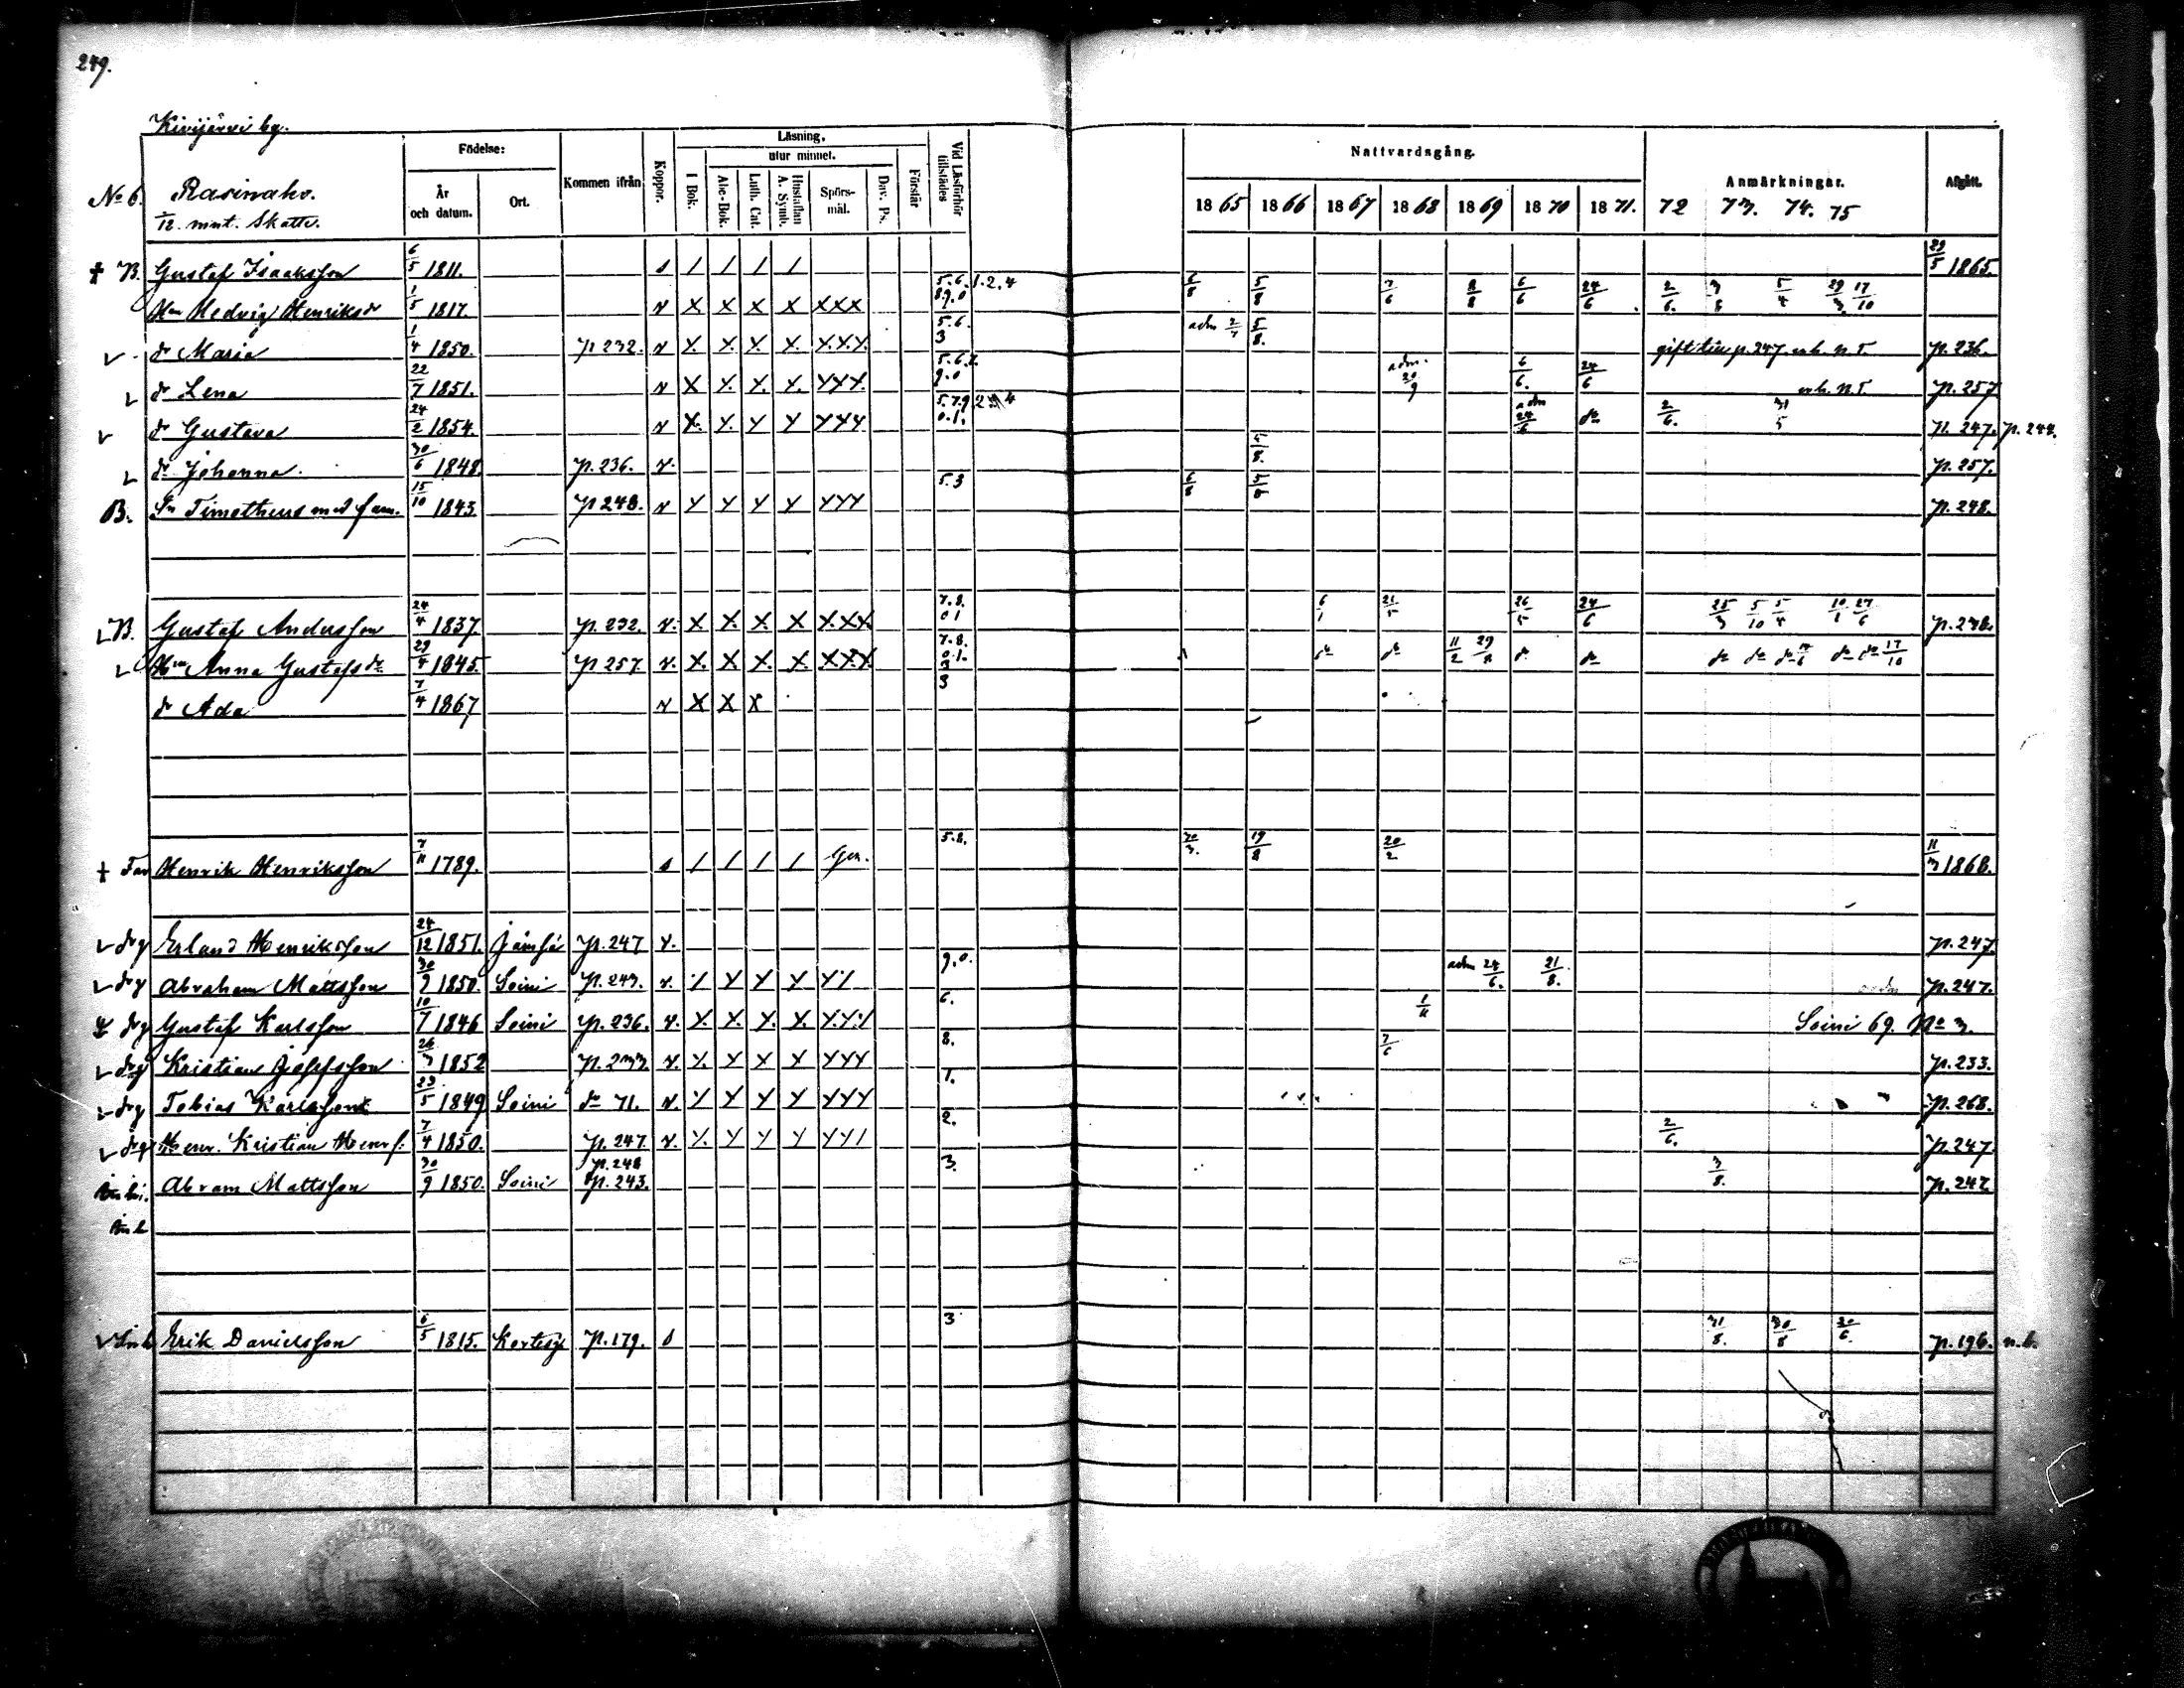 249.
Kivijärvi by.
No 6. Rasinaho.
1/12 mnt. Skatte.
Födelse: År och datum. Ort. Kommen ifrån Koppor. Läsning. I Bok. utur minnet. Abc-Bok. Luth. Cat. Hustaflan A. Symb. Spörs-mål. Dav. Ps. Förstår Vid Läsförhör tillstädes
Nattvardsgång. 1865 1866 1867 1868 1869 1870 1871. Anmärkningar. 72 73. 74. 75 Afgått.
† B. Gustaf Isaaksson 6/5 1811. s / / / / 29/5 1865.
Hu Hedvig Henriksdr 1/5 1817. v X X X X XXX 5.6. 8.9.0 1.2.4 6/8 5/8 7/6 8/8 6/6 24/6 2/6. 3/8 5/4 29/3 17/10
dr Maria 1/4 1850. p 232. v X. X. X. X. X.X.X. 5.6. 3 adm 2/7 5/8. gift till p. 247. erh. n.T. p. 236.
dr Lena 22/7 1851. v X X. X. X. XXX. 5.6.2. 9.0 adm. 20/9 6/6. 24/6 erh. n.T. p. 257
dr Gustava 24/2 1854. v X. X. X X XXX 5.7.9 0.1. adm 24/6 do 2/6. 31/5 p. 247. p. 244.
dr Johanna. 30/6 1848. p. 236. v. 5/8. p. 257.
B. Sn Timotheus med fam. 15/10 1843. p 248. v X X X X XXX 5.3 6/8 5/8 p. 248.
B. Gustaf Andersson 24/4 1837. p. 232. v. X X. X. X X.XX 7.8. 0 1 6/1 21/5 26/5 24/6 25/3 5/10 5/4 10/1 27/6 p. 248.
Hu Anna Gustafsdr 29/4 1845. p 257. v. X. X X. X. XXX 7.8. 0.1. 3 do do 11/2 29/8 do do do do do do do 17/10
dr Ada 7/4 1867 v X X X 3
† Far Henrik Henriksson 7/11 1789. s / / / / Gen. 5.8. 30/3. 19/8 20/2 11/3 1868.
drg Erland Henriksson 24/12 1851. Jämsä p. 247 v. p. 247.
drg Abraham Mattsson 30/9 1850. Soini p. 243. v. 9.0. adm 24/6. 21/8. p. 247.
drg Gustaf Karlsson 10/7 1846 Soini p. 236. v. X. X. X. X. 6. 1/11 Soini 69. No 3.
drg Kristian Josefsson 26/3 1852 p. 233. v. X. X X X XXX 8. 7/6 p. 233.
drg Tobias Karlsson 23/5 1849 Soini do 71. v. X X X XXX 1. p. 268.
drg Henr. Kristian Henrs. 7/4 1850. p. 247. v. X. X X X 2. 2/6. p. 247.
Abram Mattsson 30/9 1850. Soini p. 248 p. 243. 3. 3/8. p. 247
Inh
Inh Erik Danielsson 6/5 1815. Kortesj. p. 179. s 3 31/8. 30/8 20/6. p. 196. n.b.